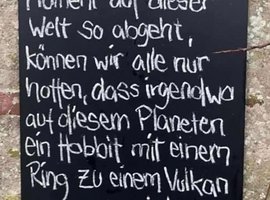 Moment auf dieser
Welt so abgeht,
können wir alle nur
hoffen, dass irgendwo
auf diesem Planeten
ein Hobbit mit einem
Ring zu einem Vulkan